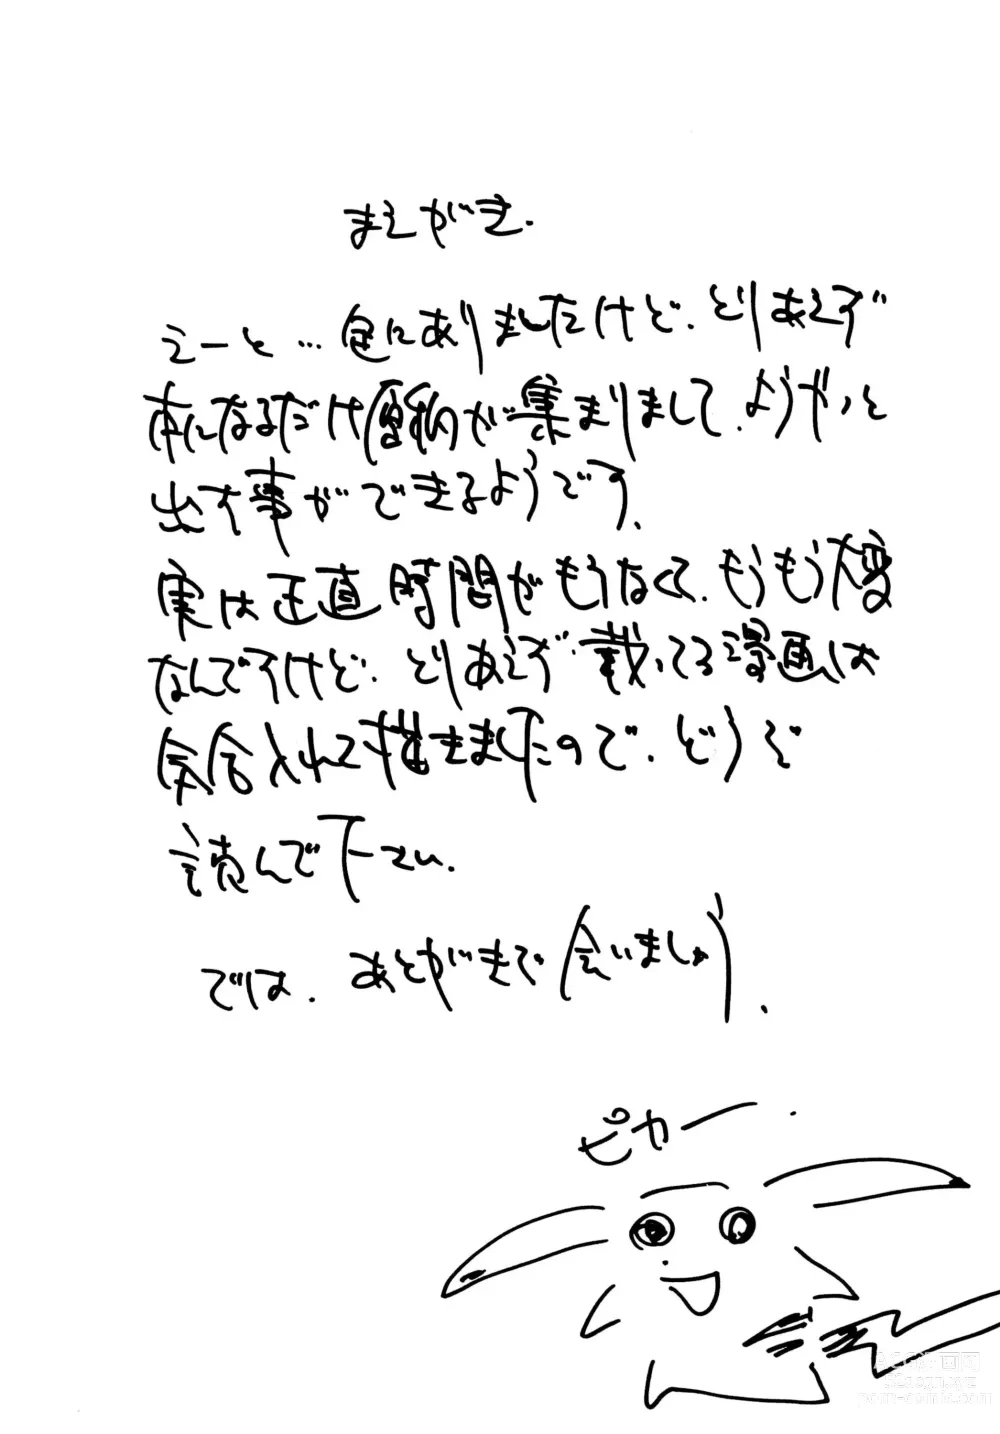 まえがき.
えーと…急にありましたけど、とりあえず
本になるだけ原稿が集まりまして、ようやっと
出す事ができるようです、
実は正直時間がもうなくて、もうもう大変
なんですけど、とりあえず載ってる漫画は
気合入れて描きましたので、どうぞ
読んで下さい、
では、あとがきで会いましょう、
ピカー.
ACG漫画网